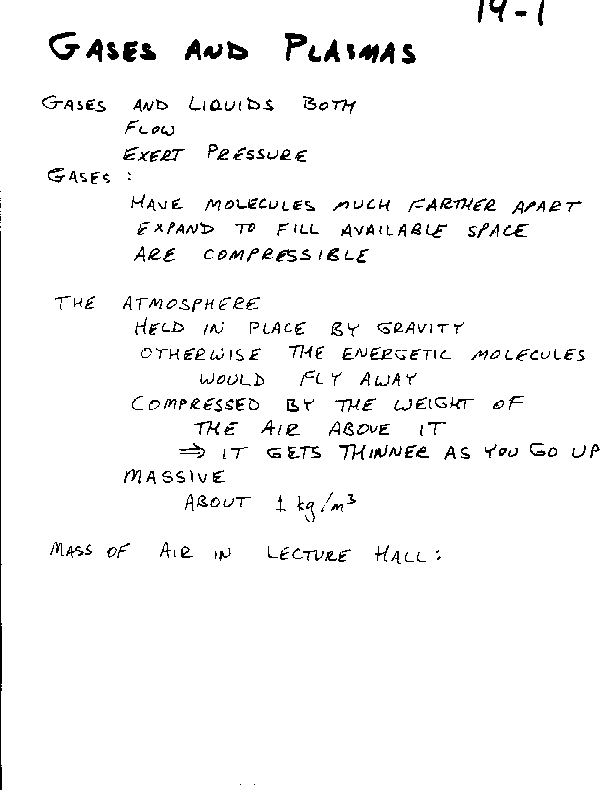 14-1
GASES AND PLASMAS
GASES AND LIQUIDS BOTH
FLOW
EXERT PRESSURE
GASES :
HAVE MOLECULES MUCH FARTHER APART
EXPAND TO FILL AVAILABLE SPACE
ARE COMPRESSIBLE
THE ATMOSPHERE
HELD IN PLACE BY GRAVITY
OTHERWISE THE ENERGETIC MOLECULES
WOULD FLY AWAY
COMPRESSED BY THE WEIGHT OF
THE AIR ABOVE IT
⇒ IT GETS THINNER AS YOU GO UP
MASSIVE
ABOUT 1 kg/m³
MASS OF AIR IN LECTURE HALL :